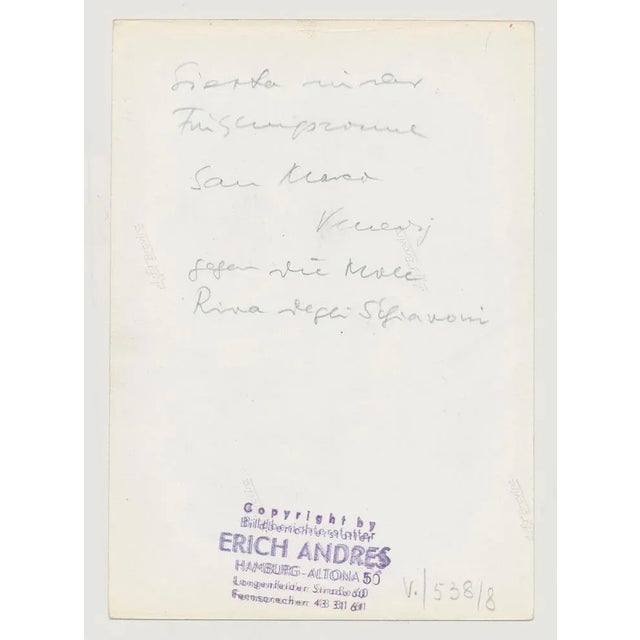 Siesta in der
Frühlingssonne
San Marco
Venedig
gegen die Mole
Riva degli Schiavoni
Copyright by
Bildberichterstatter
ERICH ANDRES
HAMBURG-ALTONA 50
Langenfelder Straße 60
Fernsprecher 43 31 61
V./538/8